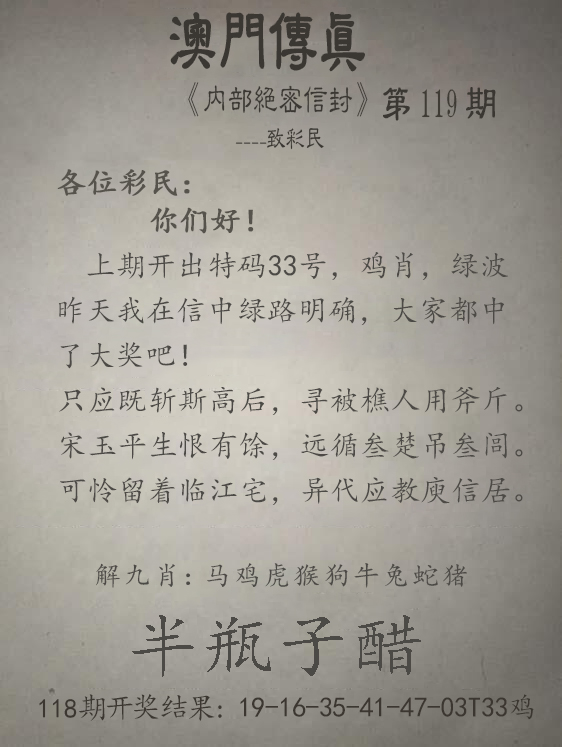 澳門傳眞
《内部絕密信封》第119期
----致彩民
各位彩民：
你们好！
上期开出特码33号，鸡肖，绿波
昨天我在信中绿路明确，大家都中
了大奖吧！
只应既斩斯高后，寻被樵人用斧斤。
宋玉平生恨有馀，远循叁楚吊叁闾。
可怜留着临江宅，异代应教庾信居。
解九肖：马鸡虎猴狗牛兔蛇猪
半瓶子醋
118期开奖结果：19-16-35-41-47-03T33鸡